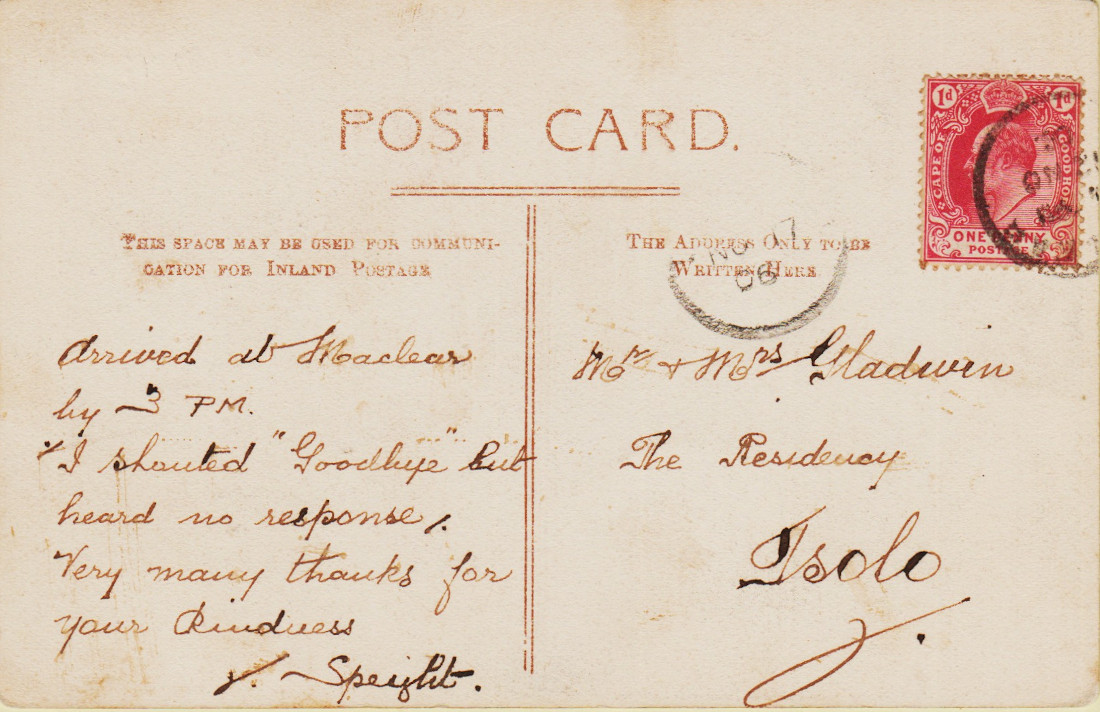 POST CARD.
THIS SPACE MAY BE USED FOR COMMUNI-
CATION FOR INLAND POSTAGE
THE ADDRESS ONLY TO BE
WRITTEN HERE
1d 1d
CAPE OF GOOD HOPE
ONE PENNY
POSTAGE
NO 17
06
Arrived at Maclear
by 3 PM.
I shouted "Goodbye" but
heard no response.
Very many thanks for
your kindness
Speight.
Mr & Mrs Gladwin
The Residency
Tsolo